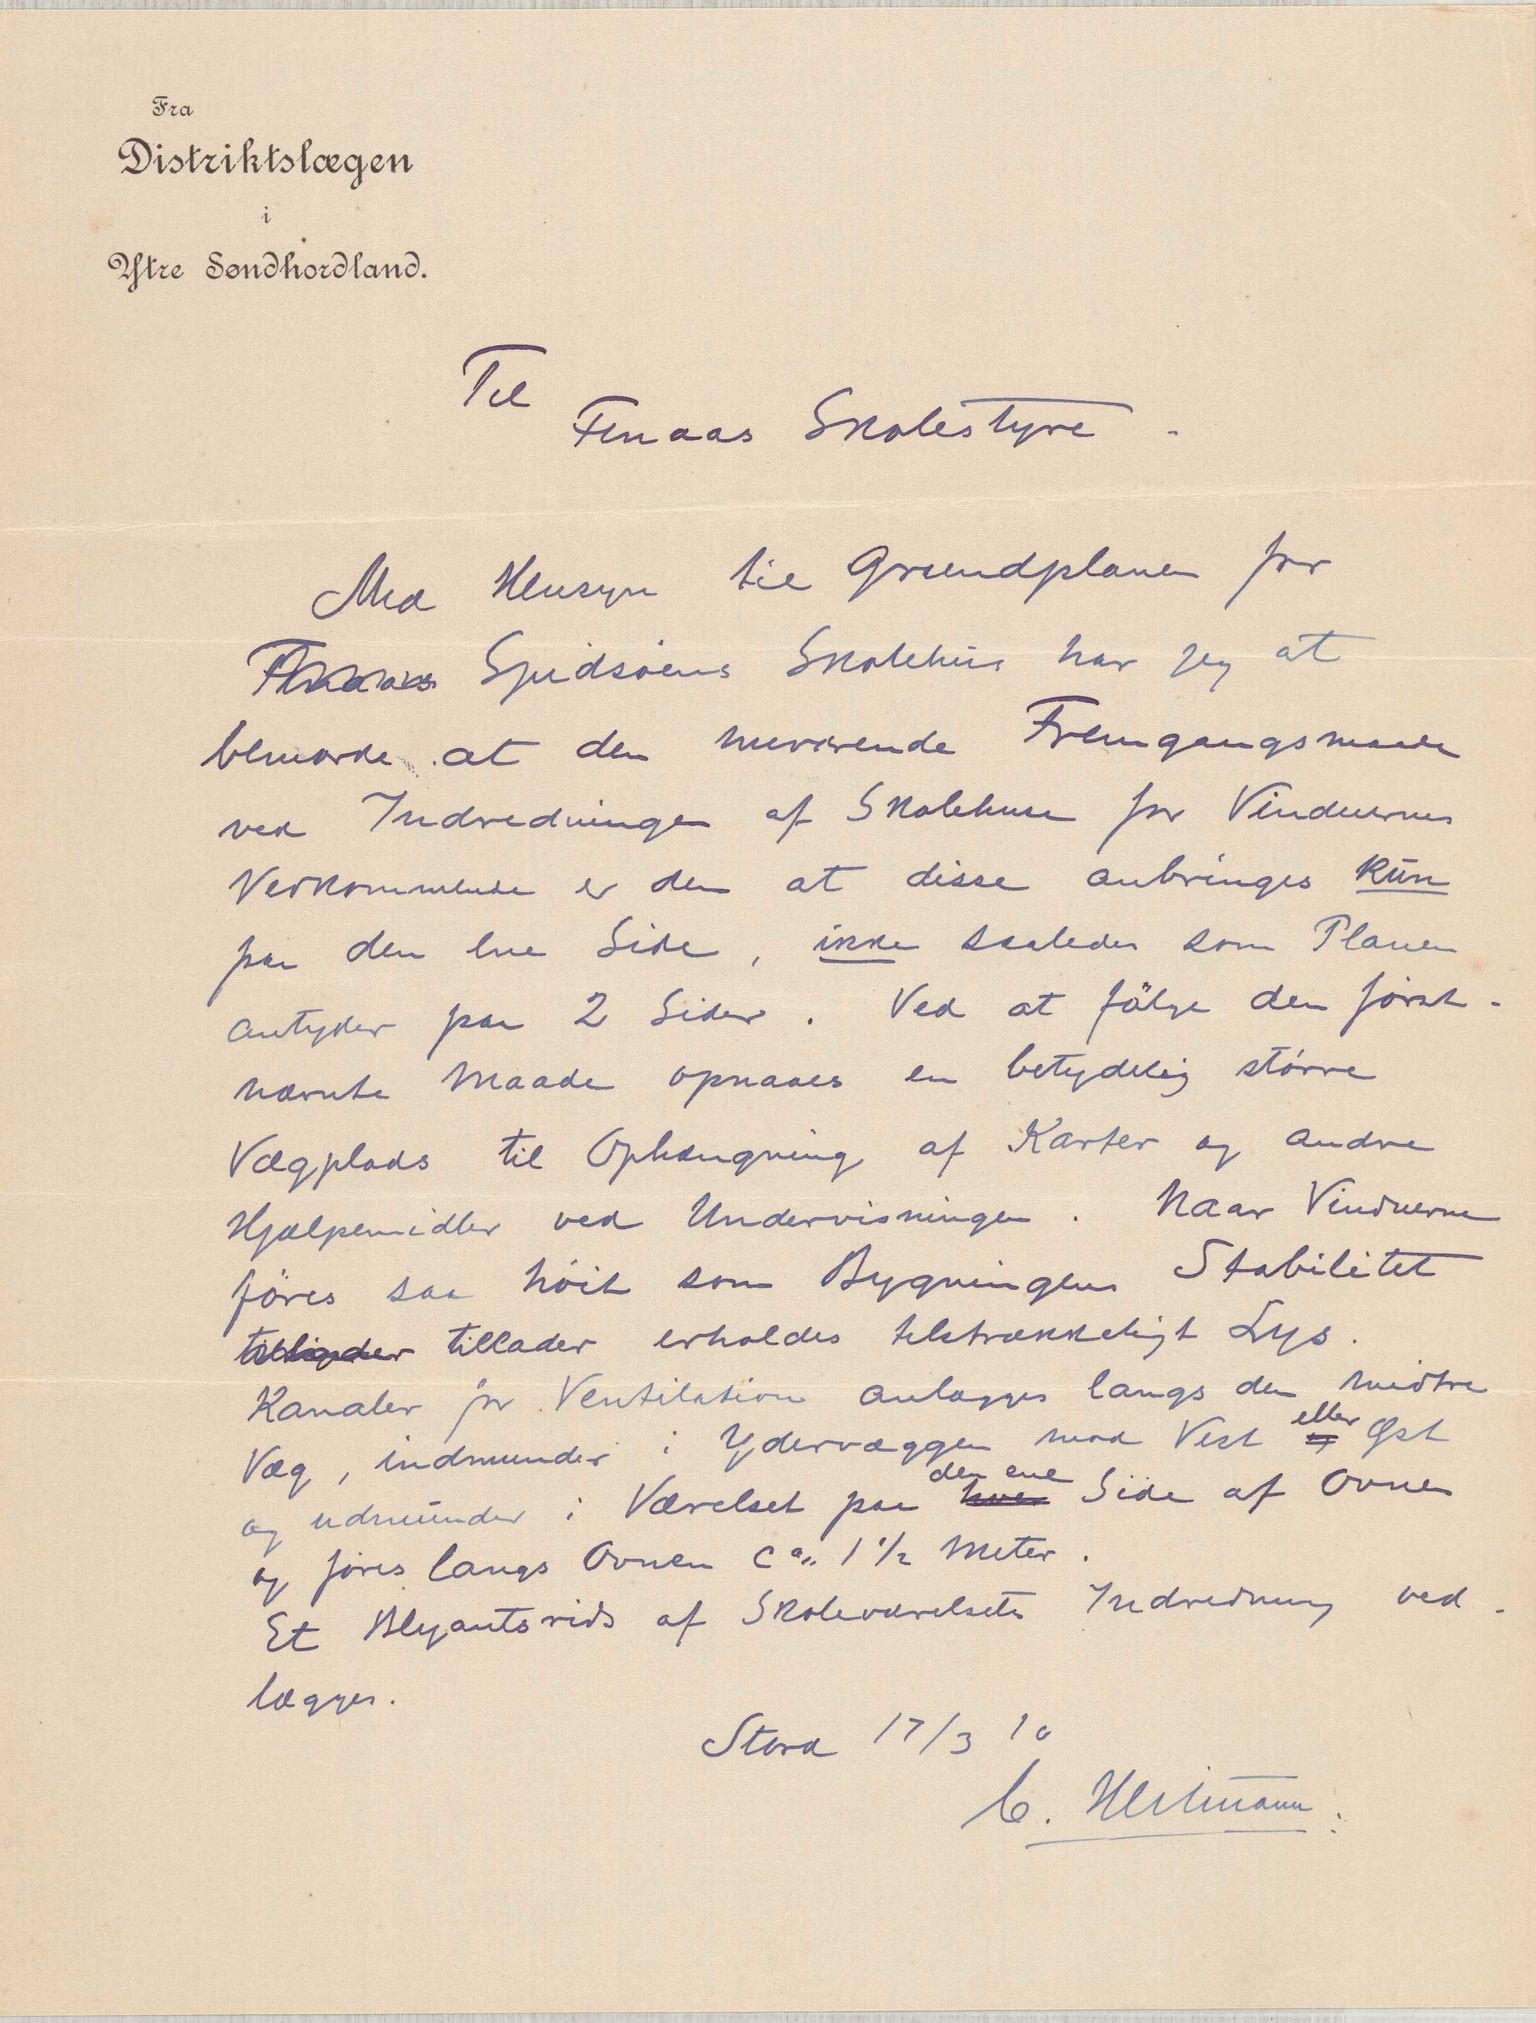 Fra
Distriktslægen
i
Ytre Søndhordland.
Til
Finaas Skolestyre.
Med Hensyn til Grundplanen for
Spidsöens Skolehus har jeg at
bemærke at den nuværende Fremgangsmaade
ved Indredningen af Skolehuse for Vinduernes
Vedkommende er den at disse anbringes kun
paa den ene Side, ikke saaledes som Planen
antyder paa 2 Sider. Ved at fölge den först-
nævnte Maade opnaaes en betydelig större
Vægplads til Ophængning af Karter og andre
Hjælpemidler ved Undervisningen. Naar Vinduerne
föres saa höit som Bygningens Stabilitet
tillader erholdes tilstrækkeligt Lys.
Kanaler for Ventilation anlægges langs den midtre
Væg, indmunder i Ydervæggen mod Vest eller Øst
og udmunder i Værelset paa den ene Side af Ovnen
og föres langs Ovnen ca. 1 1/2 Meter.
Et Blyantsrids af Skoleværelsets Indredning ved-
lægges.
Stord 17/3 10
C. Heitmann.